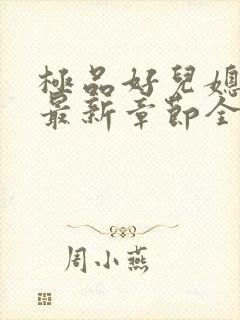 極品好兒媳
最新章節全
周小燕